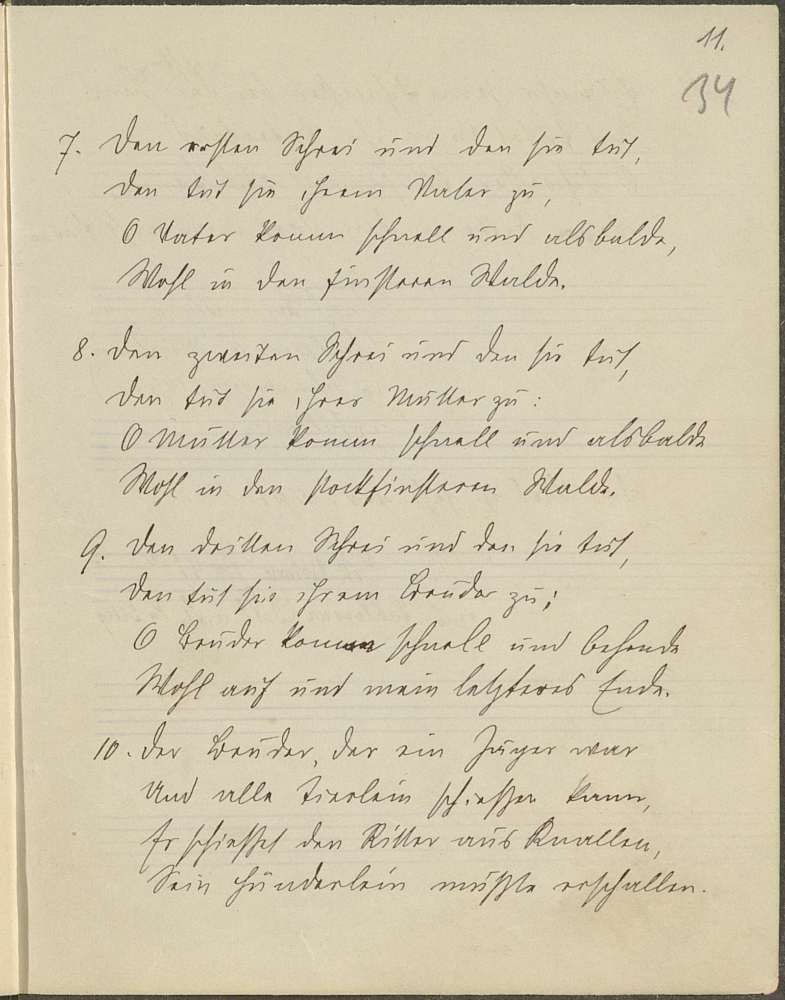 11.
34
7. Den ersten Schrei und den sie tut,
Den tut sie ihrem Vater zu,
O Vater komm schnell und alsbalde,
Wohl in den finsteren Walde.
8. Den zweiten Schrei und den sie tut,
Den tut sie ihrer Mutter zu:
O Mutter komm schnell und alsbalde
Wohl in den stockfinsteren Walde.
9. Den dritten Schrei und den sie tut,
Den tut sie ihrem Bruder zu;
O Bruder komm schnell und behende
Wohl auf und mein letzteres Ende.
10. Der Bruder, der ein Jäger war
Und alle Tierlein schießen kann,
Er schießet den Ritter aus Knallen,
Sein Hünderlein mußte erschallen.